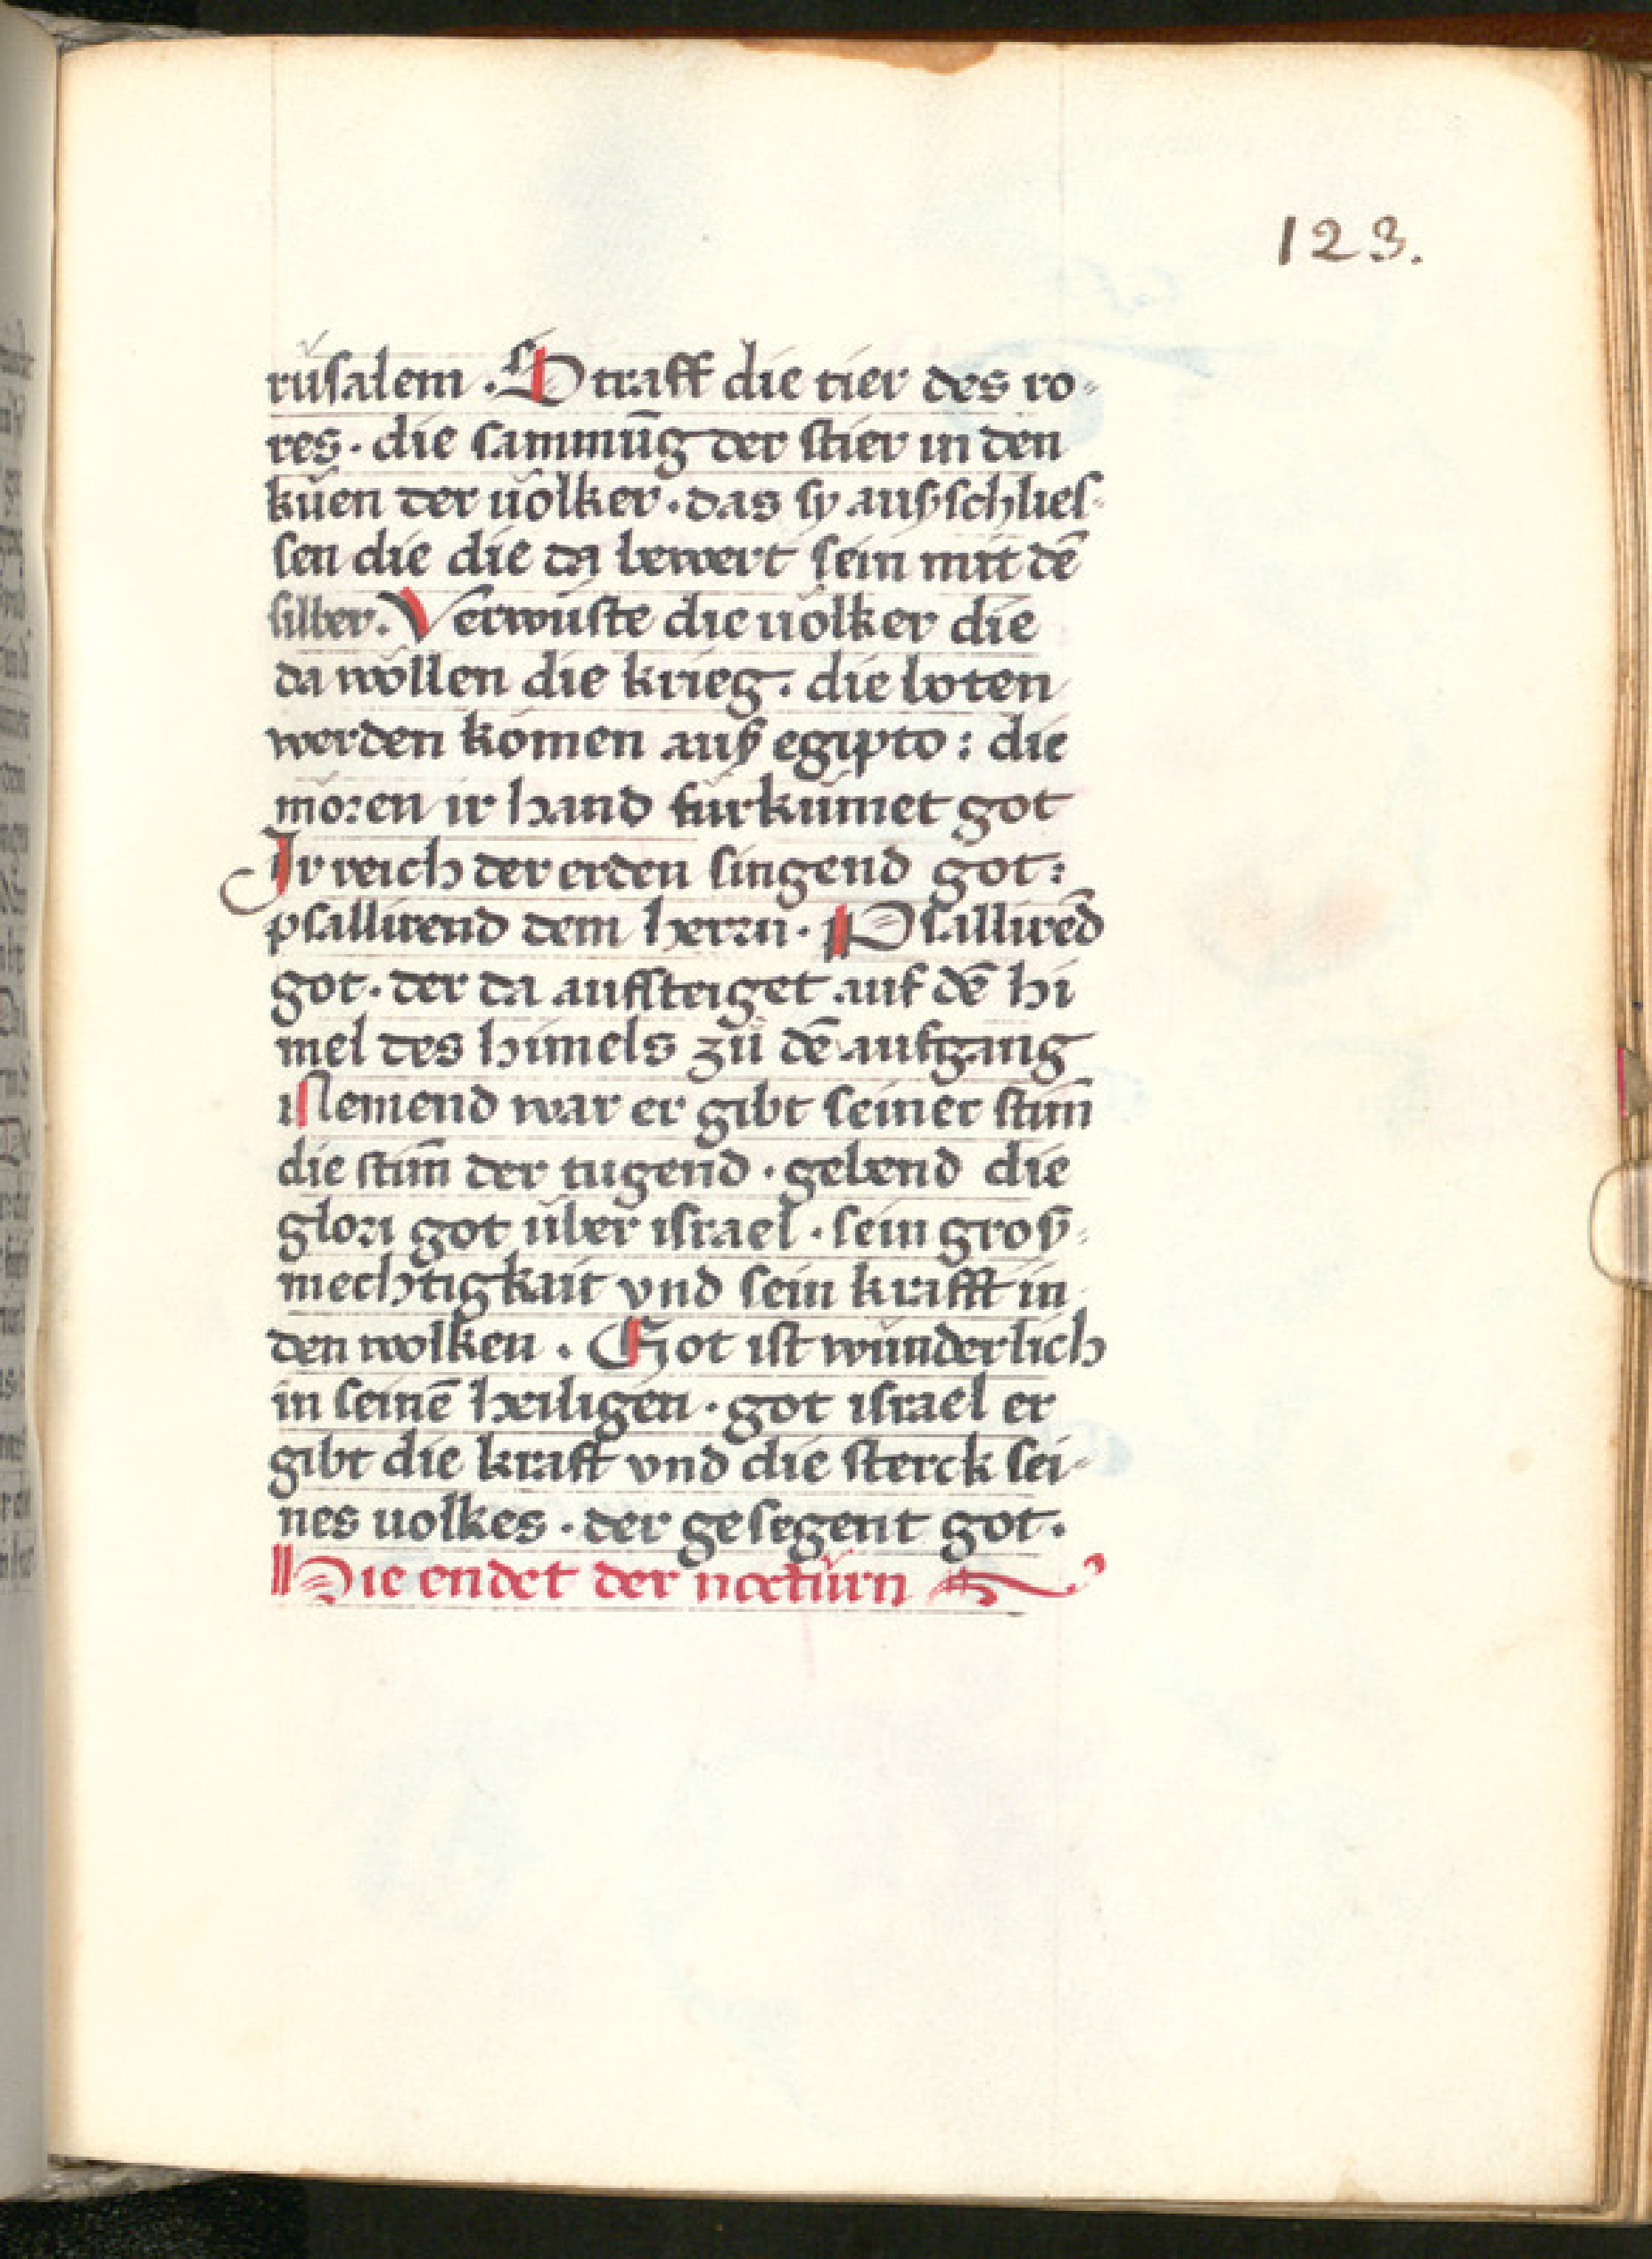 123.
rǔsalem . Straff die tier des ro-
res · die sammūg der stier in den
kǔen der uölker · das sy auß schlies-
sen die die da bewert sein mit dē
silber. Verwǔste die uölker die
da wöllen die krieg . die boten
werden kömen auß egipto : die
moren ir hand fürkümet got
Ir reich der erden singend got :
psallirend dem herrn · Psallirēd
got · der da auffsteiget auf dē hi
mel des himels zů dē aufgang
Nemend war er gibt seiner stim̄
die stim̄ der tugend · gebend die
glori got über israel · sein groß-
mechtigkait vnd sein krafft in
den wolken . Got ist wǔnderlich
in seinē heiligen · got israel er
gibt die kraft vnd die sterck sei-
nes uolkes · der gesegent got .
Hie endet der noctǔrn